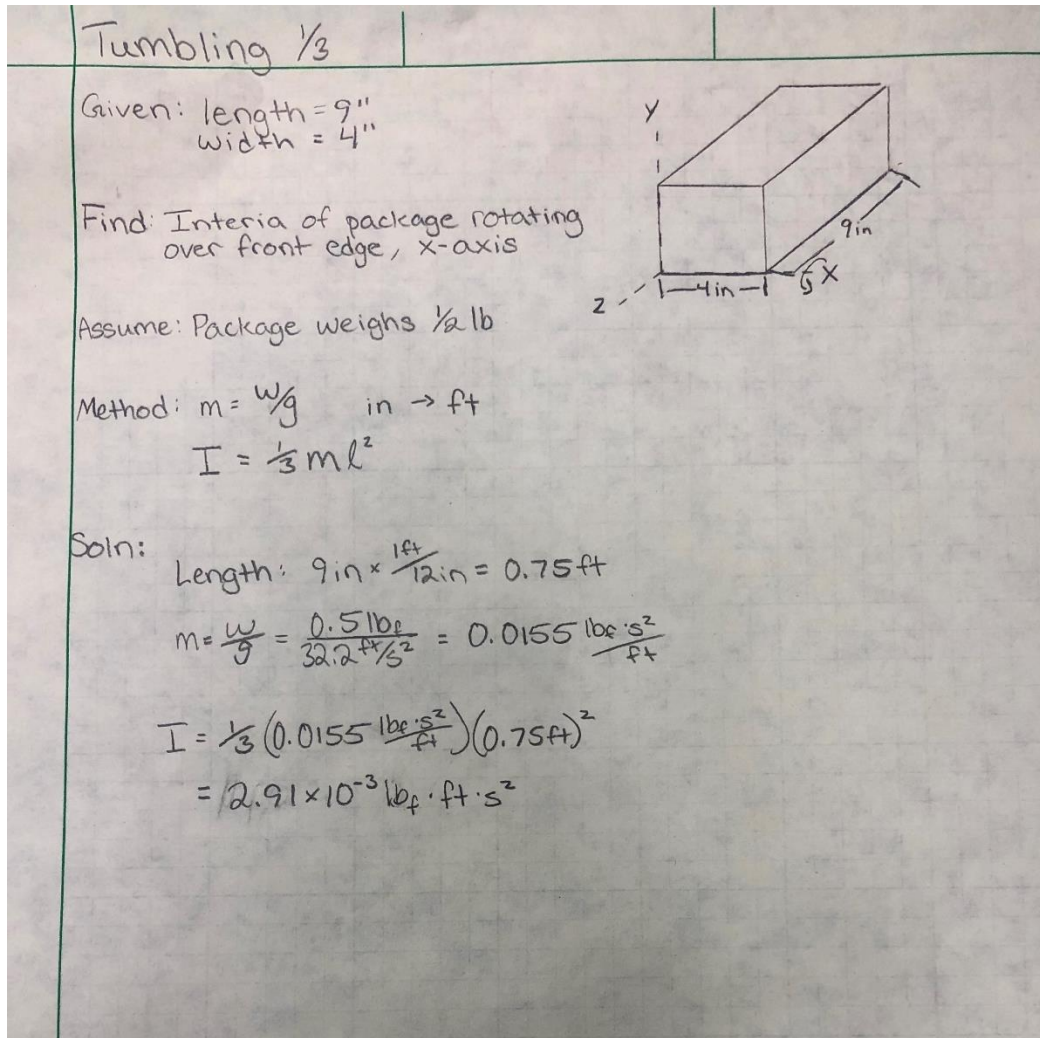 Tumbling 1/3
Given: length = 9"
width = 4"
Y
Find: Interia of package rotating
over front edge, x-axis
9in
X
4in
Z
Assume: Package weighs 1/2 lb
Method: m = W/g in → ft
I = 1/3 ml²
Soln:
Length: 9in × 1ft/12in = 0.75ft
m = w/g = 0.5 lbf / 32.2 ft/s² = 0.0155 lbf·s²/ft
I = 1/3 (0.0155 lbf·s²/ft)(0.75ft)²
= 2.91×10⁻³ lbf·ft·s²